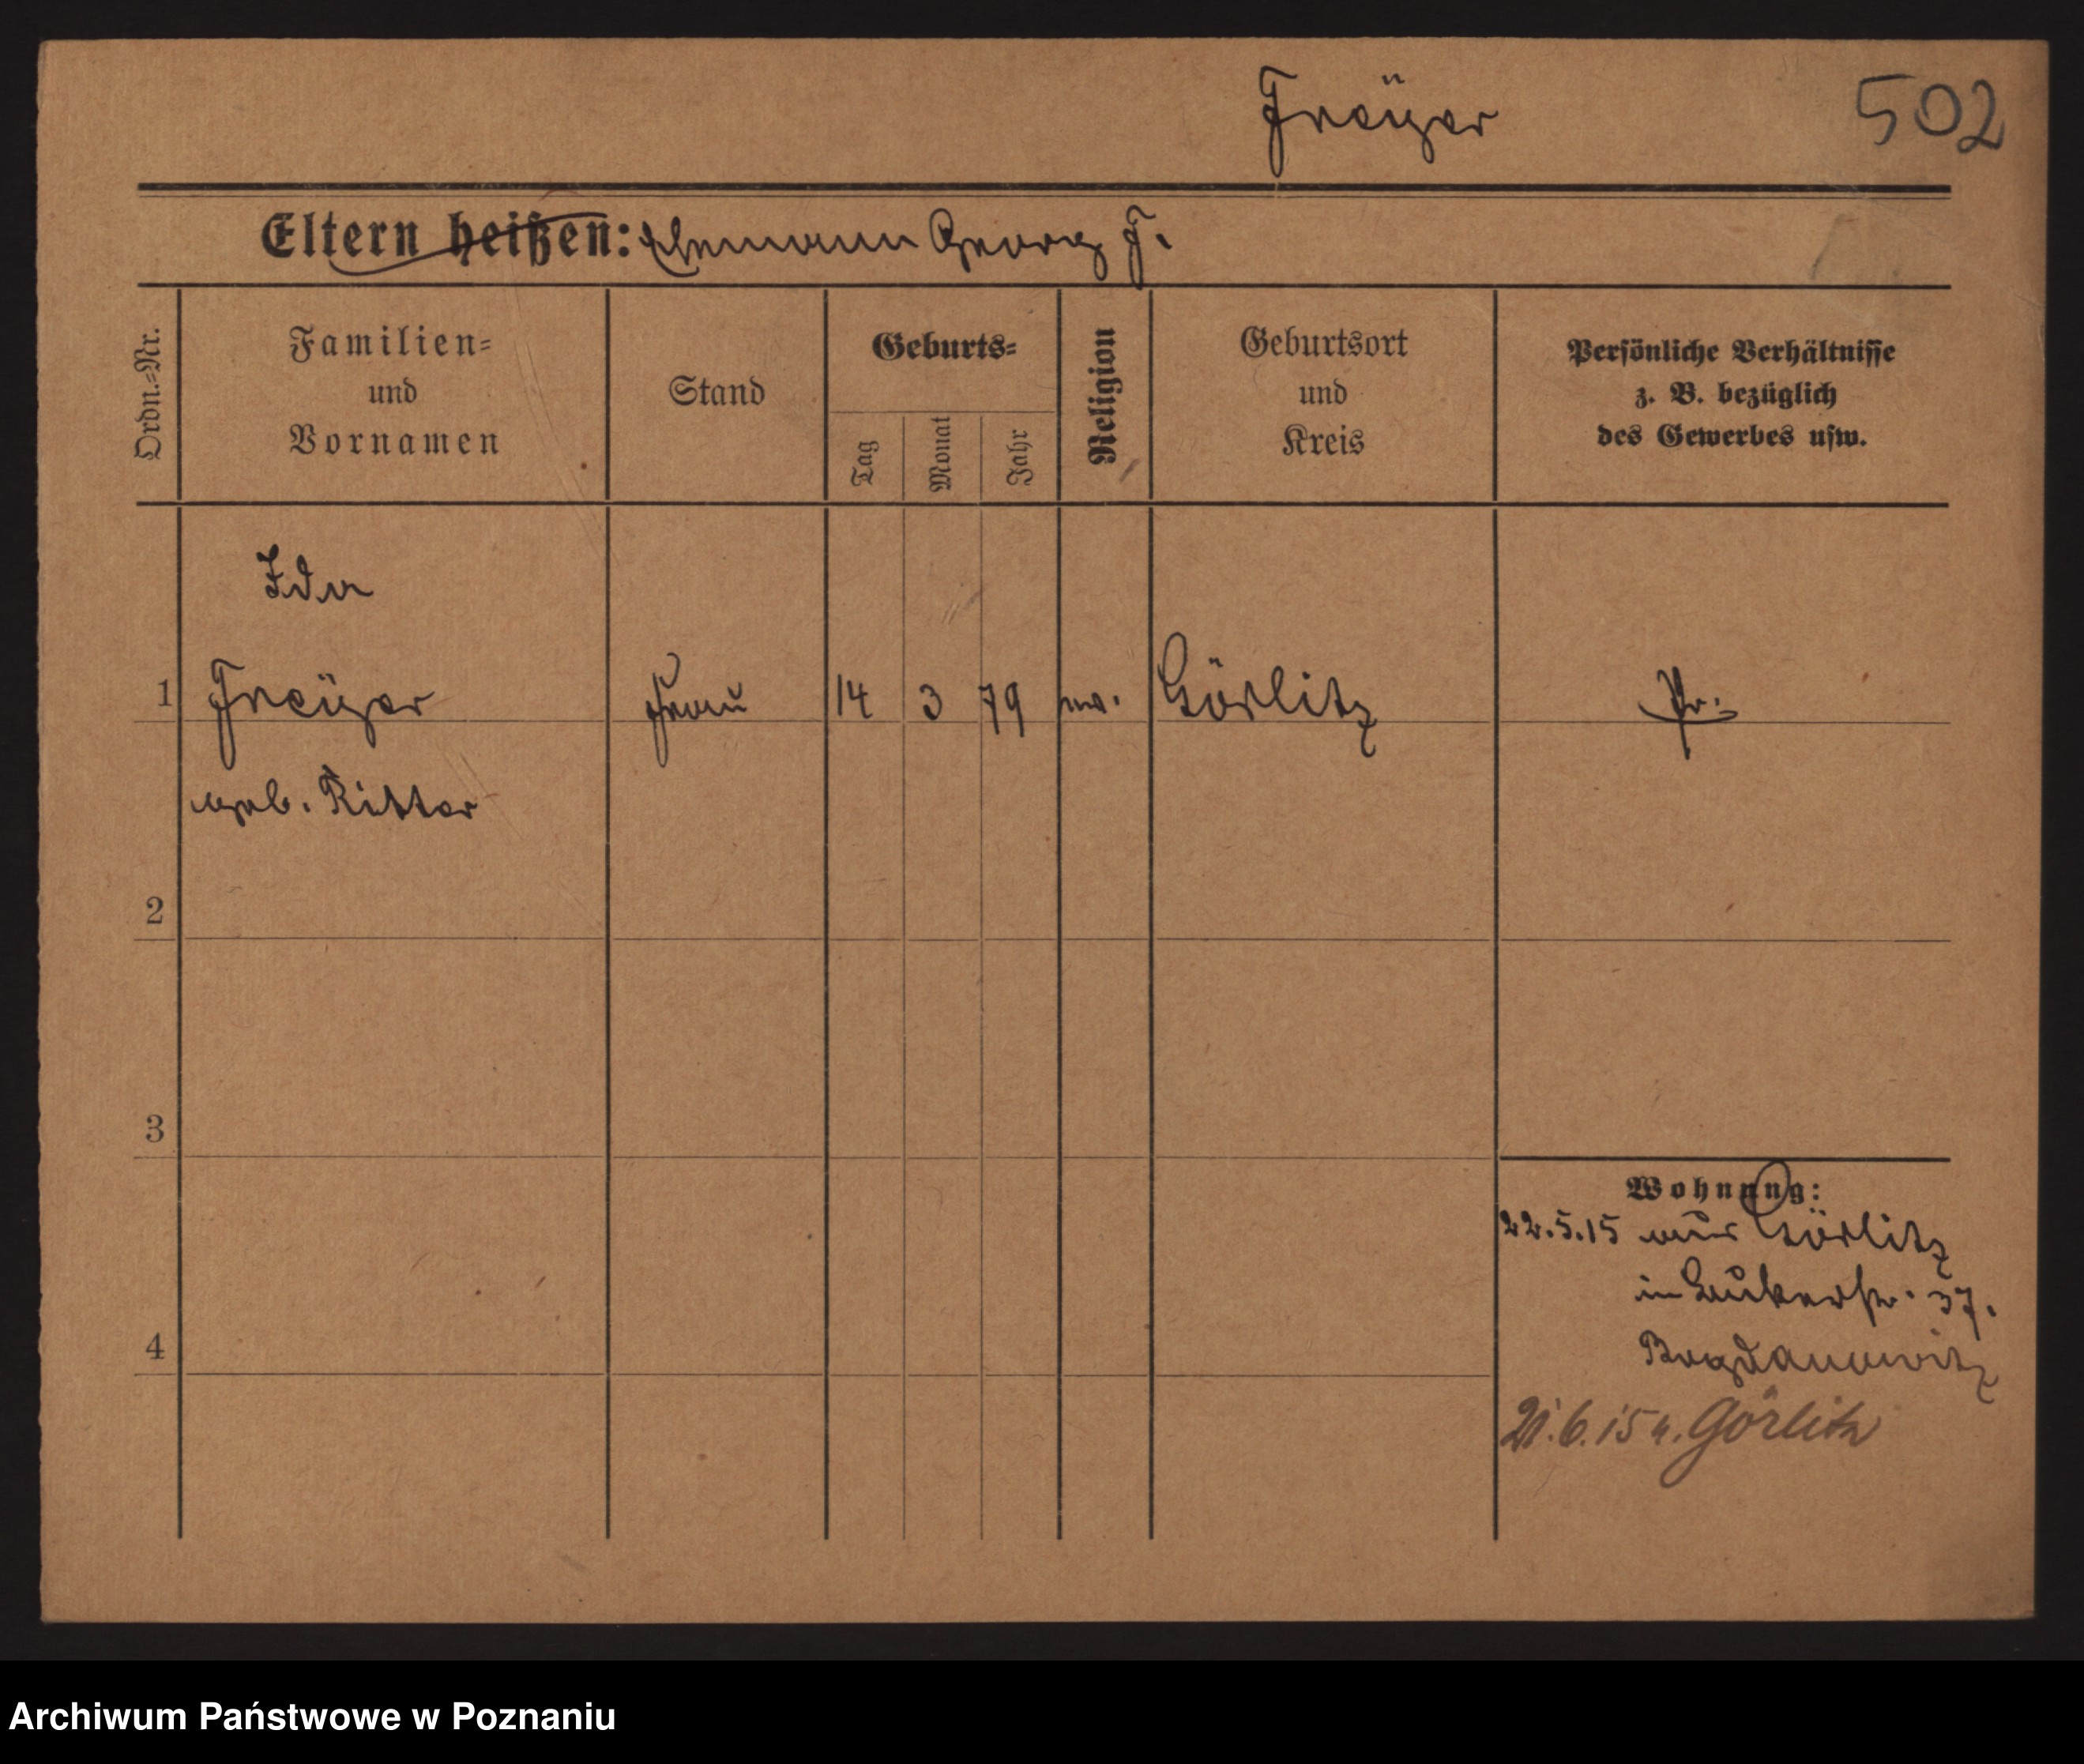 Freÿer
502
Eltern heißen: Ehemann Georg F.
Ordn.=Nr.
Familien=
und
Vornamen
Stand
Geburts=
Tag
Monat
Jahr
Religion
Geburtsort
und
Kreis
Persönliche Verhältnisse
z. B. bezüglich
des Gewerbes usw.
Ida
1 Freÿer Frau 14 3 79 ev. Görlitz Pr.
geb. Ritter
2
3
4
Wohnung:
22.5.15 aus Görlitz
in 37.
Bogdanowitz
21.6.15 n. Görlitz
Archiwum Państwowe w Poznaniu